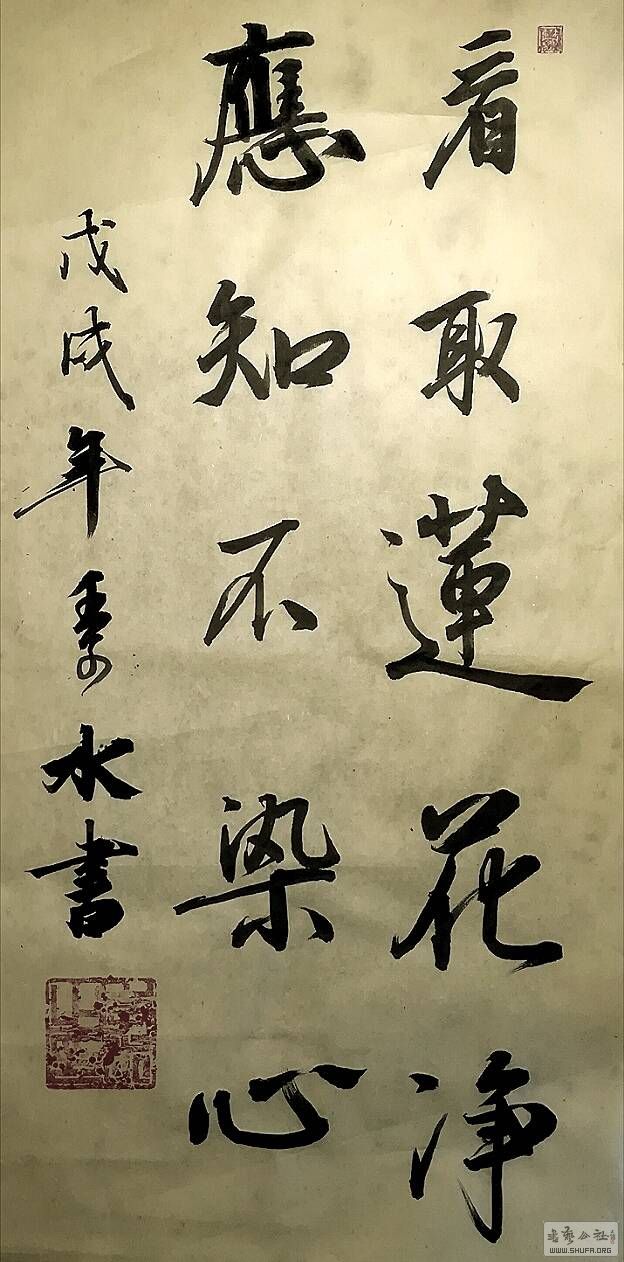 看取蓮花净
應知不染心
戊戌年季水書
WWW.SHUFA.ORG